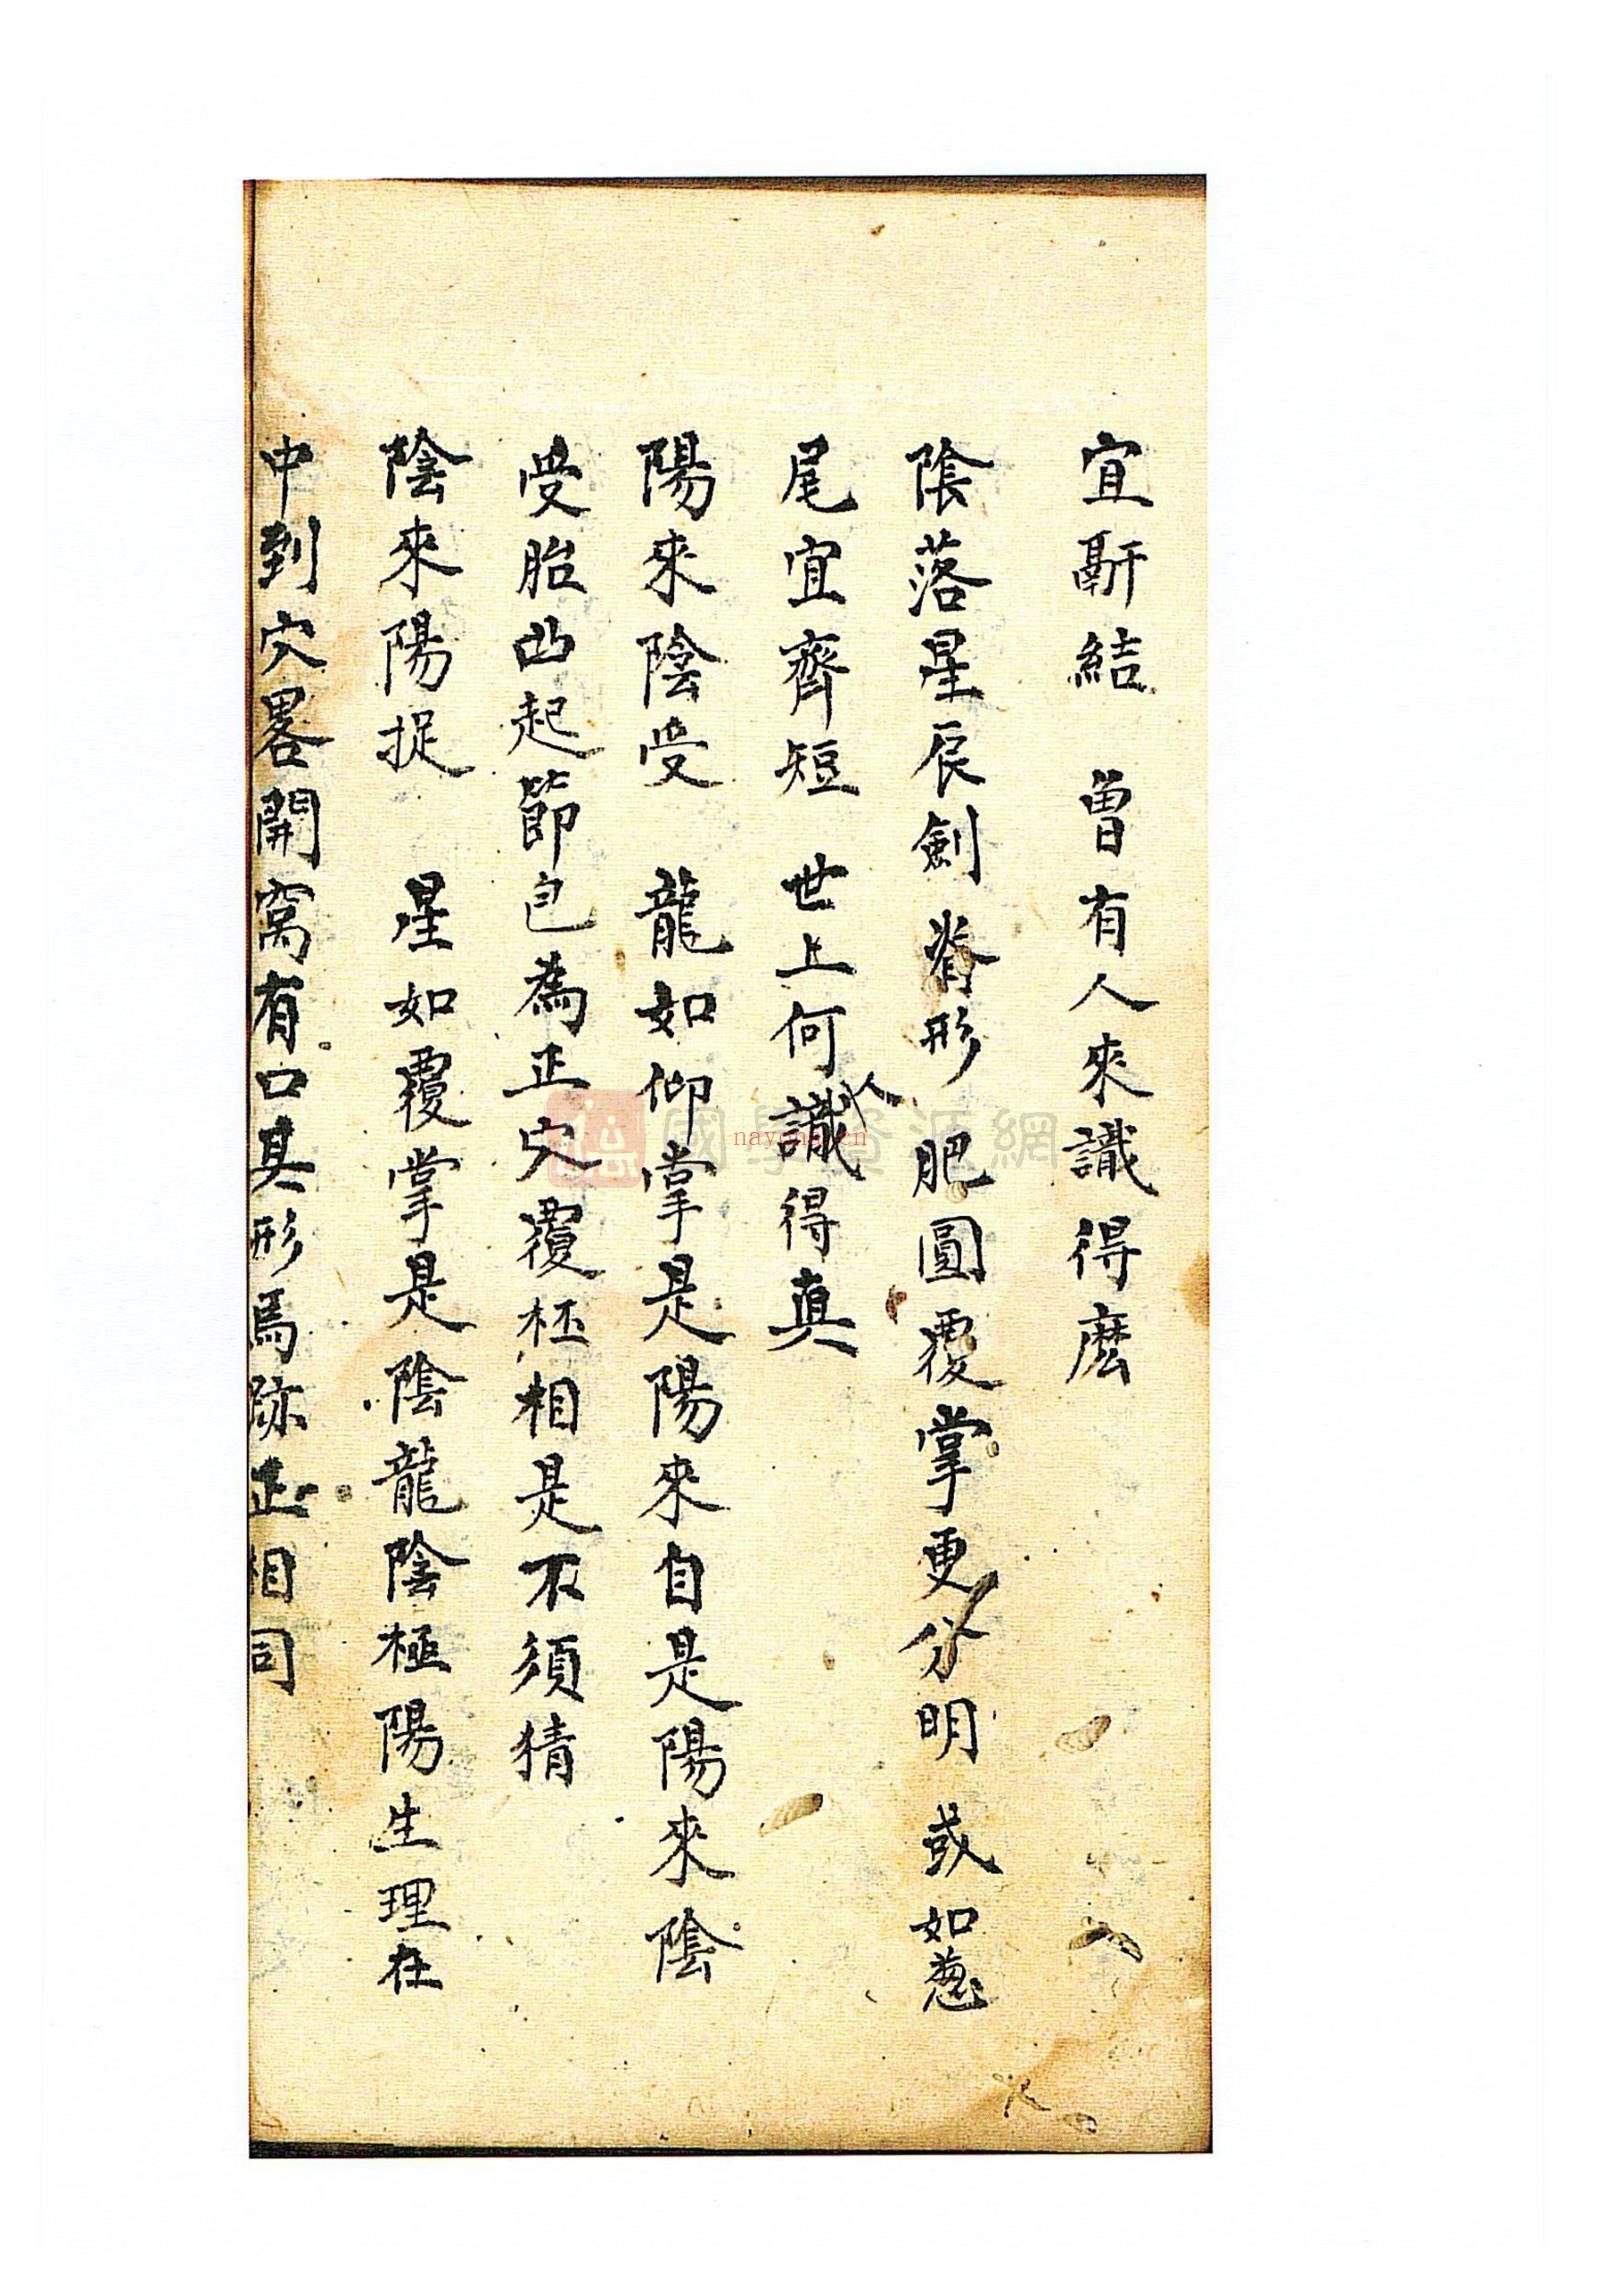 宜斷結　曾有人來識得麽
陰落星辰劍脊形肥圓覆掌更分明或如葱
尾宜齊短世上何人識得真
陽來陰受　龍如仰掌是陽來自是陽來陰
受胎凸起節包為正穴覆柸相是不須猜
陰來陽捉　星如覆掌是陰龍陰極陽生理在
中到穴畧開窩有口其形馬跡正相同
國學資源網
nayona.cn